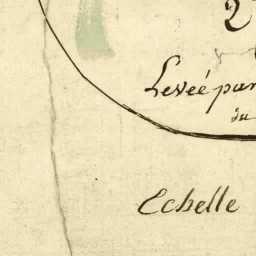 2
Leveé par
du
Echelle